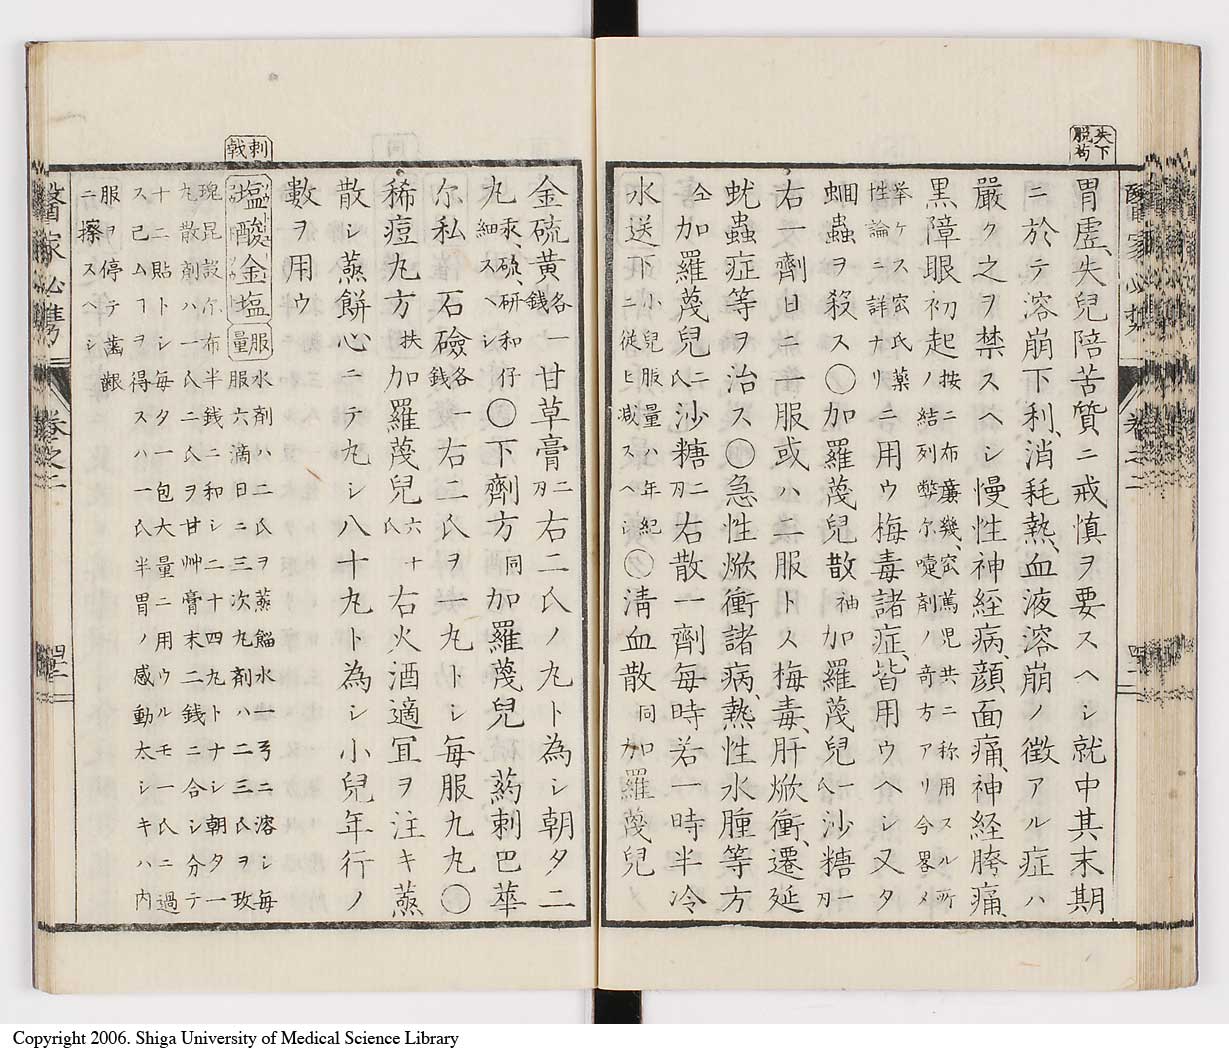 失下
脱芍
胃虚、失兒陪苦質ニ戒慎ヲ要スヘシ就中其末期
ニ於テ溶崩下利、消耗熱、血液溶崩ノ徴アル症ハ
嚴ク之ヲ禁スヘシ慢性神経病、顔面痛、神経胯痛、
黒障眼初起ノ按ニ布廉幾、宻篤児共ニ称用スル所
結列弊尓嚏剤ノ奇方アリ今畧メ
挙ケス宻氏薬
性論ニ詳ナリニ用ウ梅毒諸症、皆用ウヘシ又タ
蛔蟲ヲ殺ス〇加羅蔑兒散 袖 加羅蔑兒一氏沙糖一刀
右一劑日ニ一服或ハ二服トス梅毒、肝焮衝、遷延
蚘蟲症等ヲ治ス〇急性焮衝諸病熱性水腫等方
仝加羅蔑兒二氏沙糖二刀右散一劑毎時、若一時半冷
水送下小兒服量ハ年紀
ニ従ヒ減スヘシ〇淸血散 同 加羅蔑兒
金硫黄各一
銭甘草膏二刀右二氏ノ丸ト為シ朝夕二
丸汞、硫、研和仔
細スヘシ〇下劑方 同 加羅蔑兒 葯刺巴華
尓私 石鹼各一
銭右二氏ヲ一丸トシ毎服九丸〇
稀痘丸方 扶 加羅蔑兒六十
氏右火酒適冝ヲ注キ蒸
散シ蒸餅心ニテ丸シ八十丸ト為シ小兒年行ノ
數ヲ用ウ
刺
戟
塩酸金塩 服量 水剤ハ二氏ヲ蒸餾水ニ溶シ毎
服六滴日ニ三次丸剤ハ二三氏ヲ玫
瑰昆設尓布半銭ニ和シ二十四丸トナシ朝夕一
丸散剤ハ一氏二氏ヲ甘艸膏末二銭ニ合シ分テ
十二貼トシ毎夕一包大量ニ用ウルモ一氏ニ過
ス已ムヿヲ得スハ一氏半胃ノ感動太シキハ内
服ヲ停テ齒齦
ニ擦スヘシ
醫家必携 卷之二
Copyright 2006. Shiga University of Medical Science Library